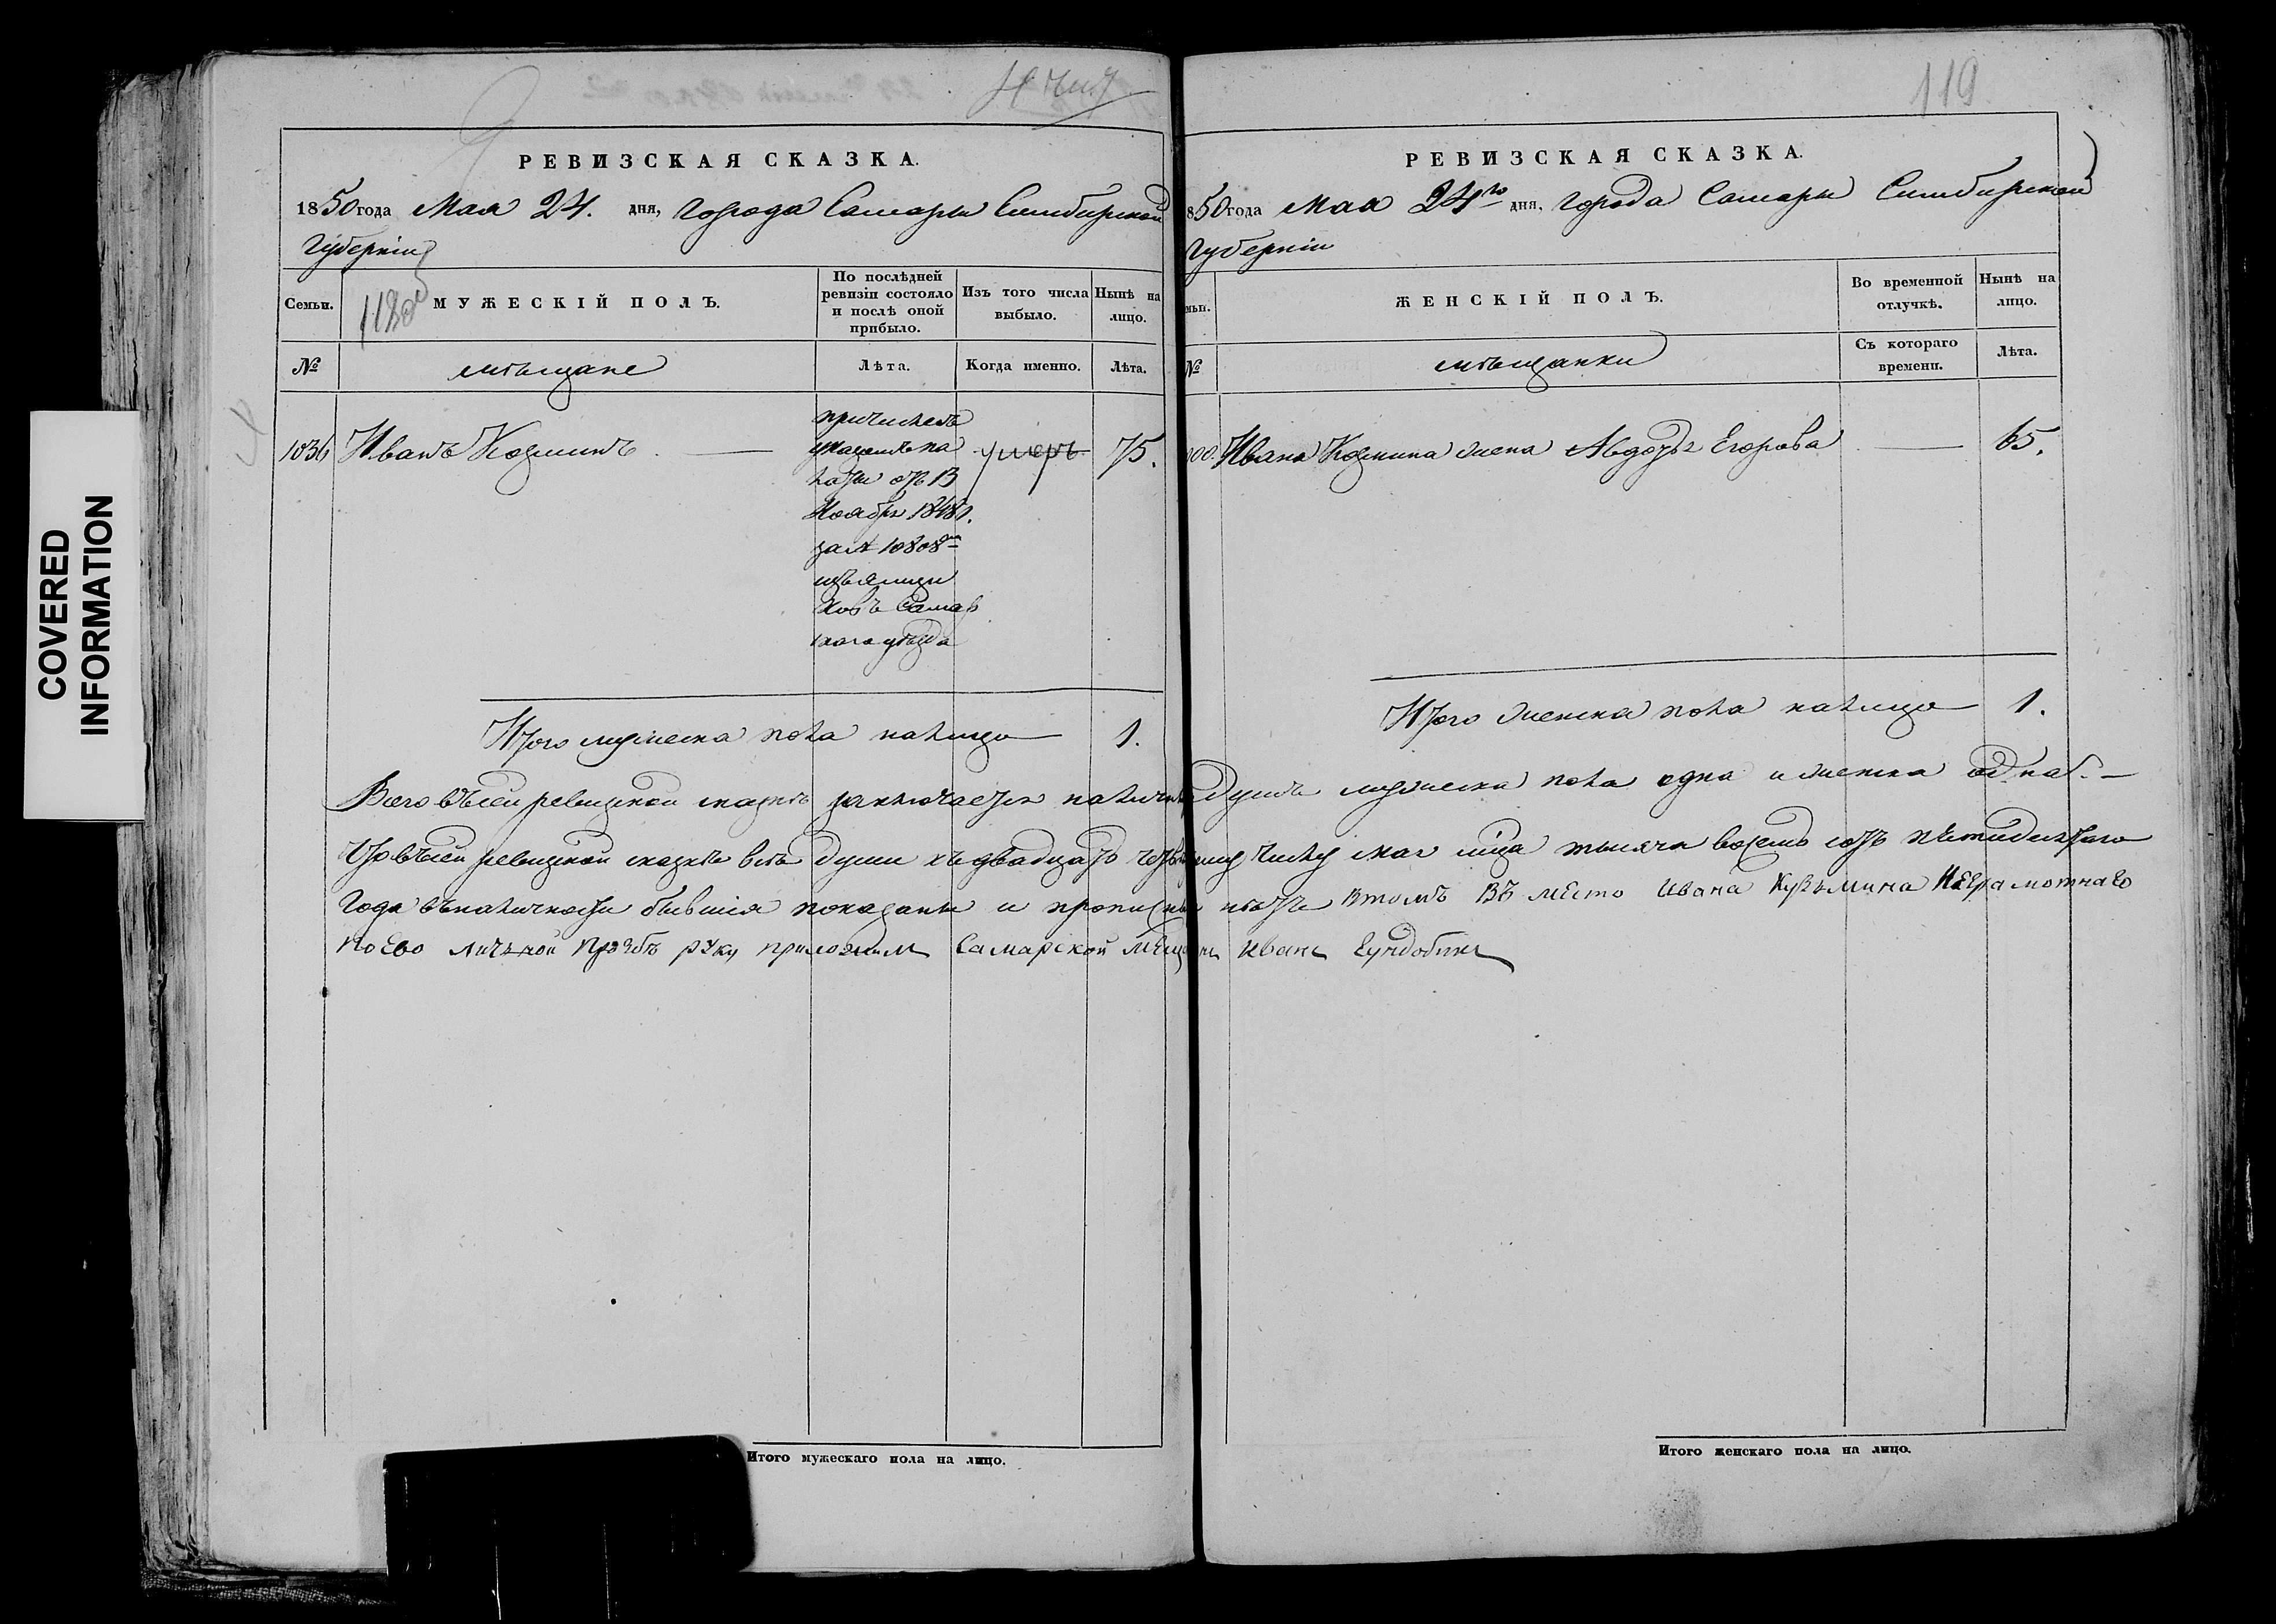 119
РЕВИЗСКАЯ СКАЗКА.
1850 года Мая 24. дня, города Самары Симбирской
губерніи
Семьи.
МУЖЕСКІЙ ПОЛЪ.
По послѣдней ревизіи состояло и послѣ оной прибыло.
Изъ того числа выбыло.
Нынѣ на лицо.
№
мѣщане
Лѣта.
Когда именно.
Лѣта.
1036 Иванъ Козминъ
причисленъ
указомъ па
латы отъ 13
Ноября 1848 г.
за № 10808
изъ ямщи
ковъ Самар
скаго уѣзда
умеръ
75.
Итого мужеска пола налицо 1.
РЕВИЗСКАЯ СКАЗКА.
850 года Мая 24го дня, города Самары Симбирской
губерніи
мьи.
ЖЕНСКІЙ ПОЛЪ.
Во временной отлучкѣ.
Нынѣ на лицо.
№
мѣщанки
Съ котораго времени.
Лѣта.
Ивана Козмина жена Авдотья Егорова 65.
Итого женска пола налицо 1.
Всего въ сей ревизской сказкѣ заключается наличныхъ душъ мужеска пола одна и женска одна.
Что въ сей ревизской сказкѣ всѣ души къ двадцать четвертому числу мая мца тысяча восемь сотъ пятидесятаго
года въ наличности бывшія показаны и прописныхъ нѣтъ Втомъ Въ место Ивана Кузьмина Неграмотнаго
по Ево личьной прозбѣ руку приложилъ Самарской мещанинъ Иванъ
Итого мужескаго пола на лицо.
Итого женскаго пола на лицо.
COVERED
INFORMATION